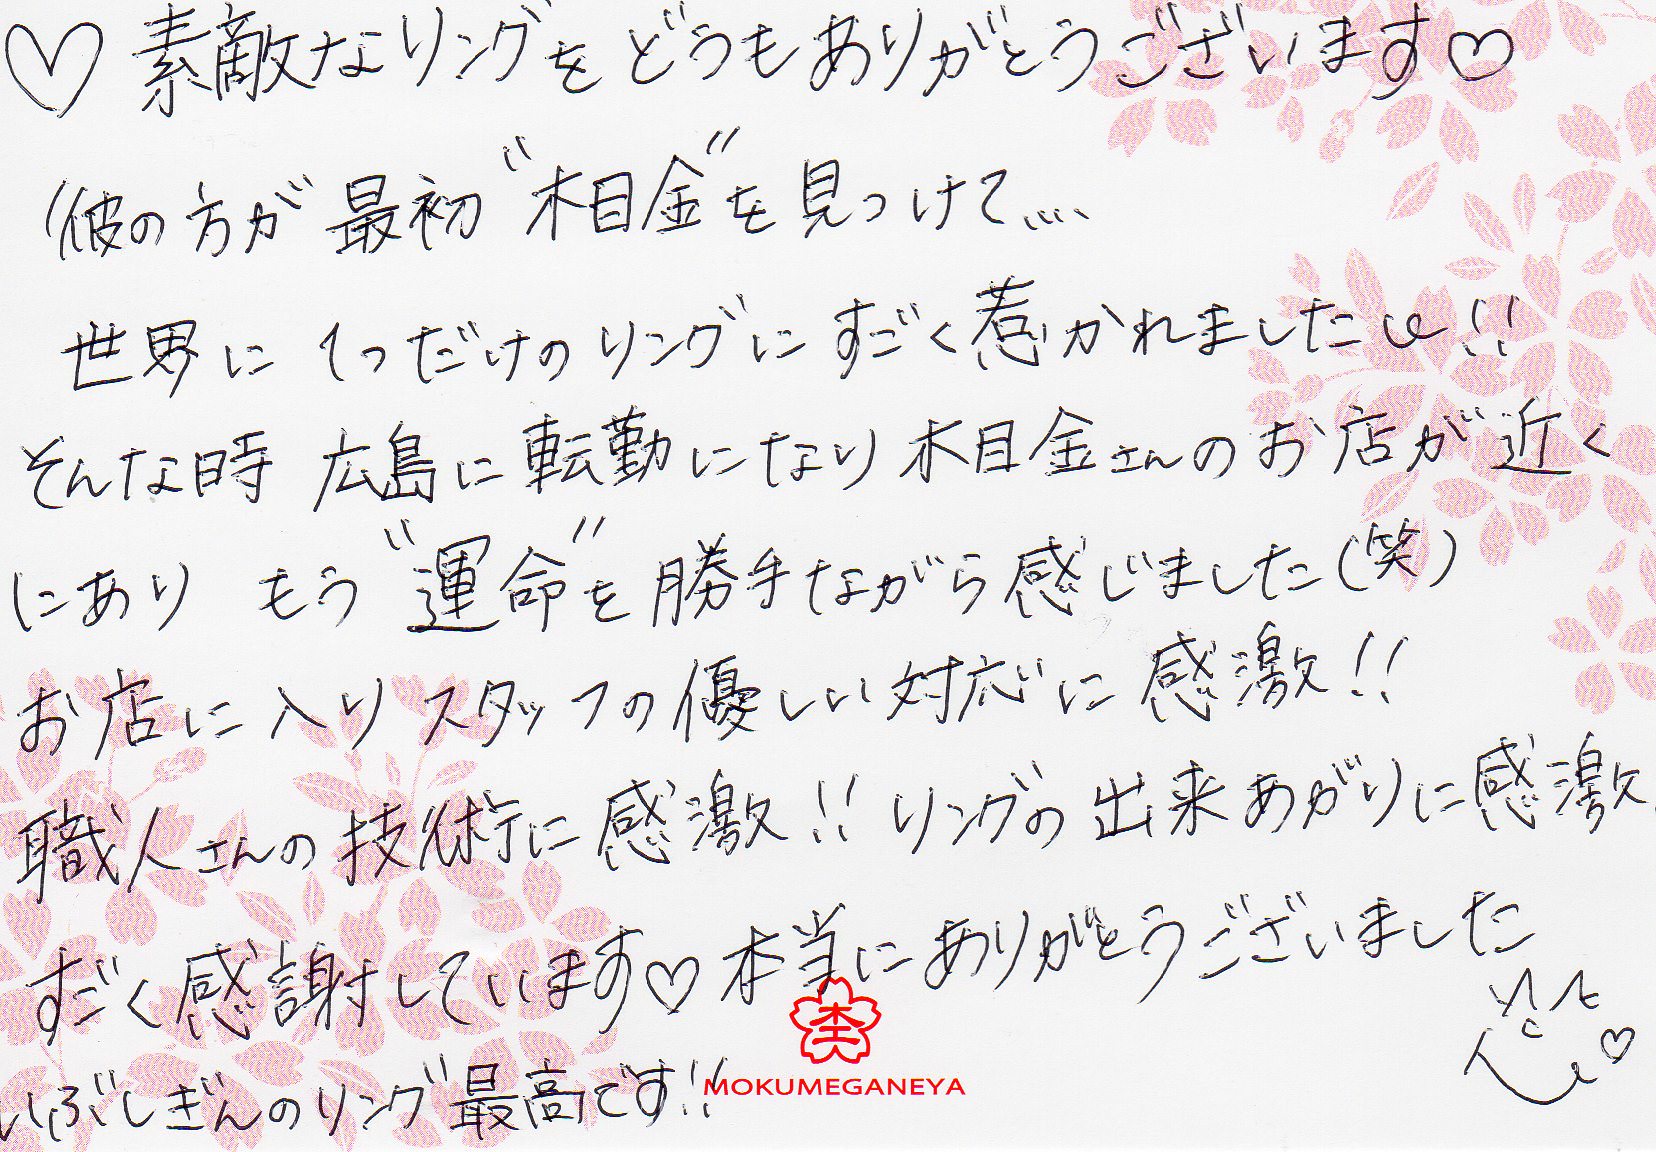 ♡素敵なリングをどうもありがとうございます♡
彼の方が最初“木目金”を見つけて....
世界に1つだけのリングにすごく惹かれました!!
そんな時 広島に転勤になり木目金さんのお店が近く
にあり もう“運命”を勝手ながら感じました(笑)
お店に入りスタッフの優しい対応に感激!!
職人さんの技術に感激!! リングの出来あがりに感激
すごく感謝しています♡本当にありがとうございました
いぶしぎんのリング最高です!!
MOKUMEGANEYA